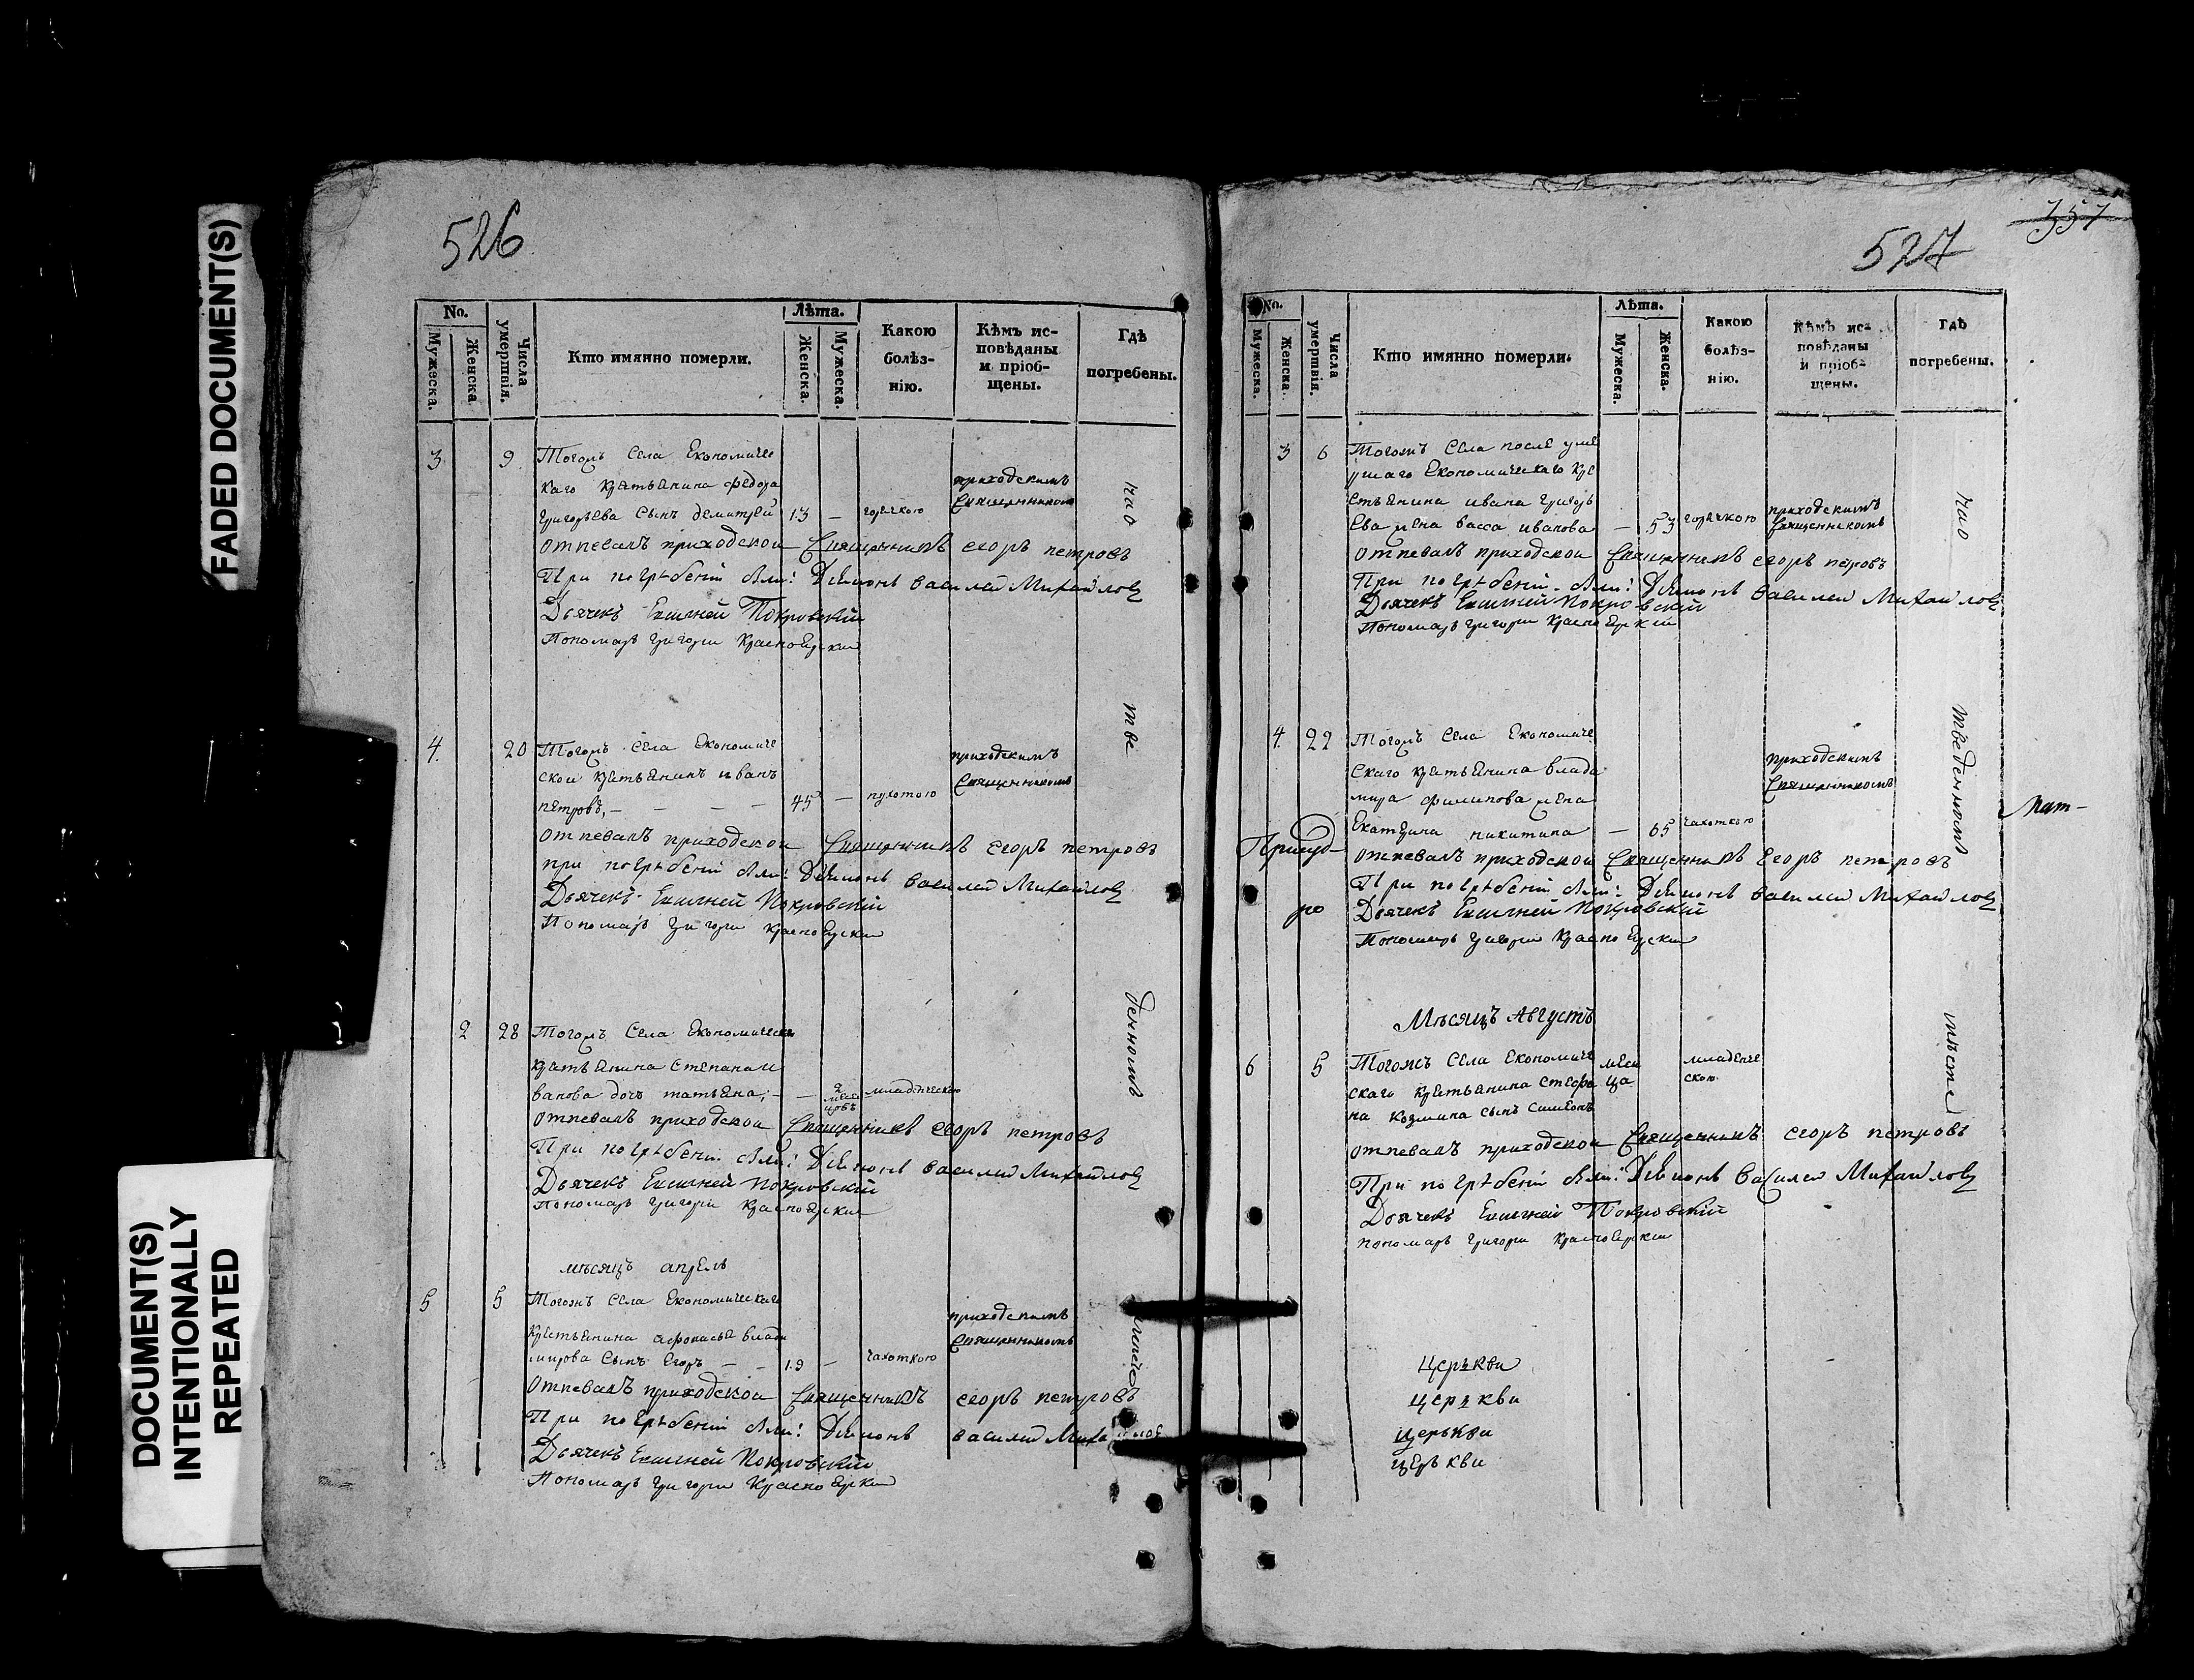 FADED DOCUMENT(S)
DOCUMENT(S)
INTENTIONALLY
REPEATED
526
No.
Мужеска.
Женска.
Числа умертвія.
Кто имянно померли.
Лѣта.
Женска.
Мужеска.
Какою болѣз-
нію.
Кѣмъ ис-
повѣданы
и пріоб-
щены.
Гдѣ
погребены.
3 9 Тогожъ Села Економиче
каго крестьянина Федора
Григорьева Сынъ демитрей 13 — горячкою приходскимъ Священникомъ
отпевалъ приходской Священникъ егоръ петровъ
При погребеніи были: Діаконъ василей Михайловъ
Дьячекъ Евгеней Покровскій
Пономарь григори Красно
4. 20 Тогожъ Села Економиче
ской крестьянинъ иванъ
петровъ, — — — — 45 — приходскимъ Священникомъ
отпевалъ приходской Священникъ егоръ петровъ
при погребеніи были: Діаконъ василей Михайловъ
Дьячекъ Евгеней Покровскій
Пономарь григори Красно
2 28 Тогожъ Села Економическа
крестьянина Степана и
ванова дочь татьяна; — — 2 меся
цовъ младенческою
отпевалъ приходской Священникъ егоръ петровъ
При погребеніи были: Діаконъ василей Михайловъ
Дьячекъ Евгеней Покровскій
Пономарь григори Красно
мѣсяцъ апрель
5 5 Тогожъ Села Економическаго
крестьянина афонасья влади
мирова Сынъ Егоръ — — 19 — чахоткою приходскимъ Священникомъ
отпевалъ приходской Священникъ егоръ петровъ
При погребеніи были: Діаконъ василей
Дьячекъ Евгеней Покровскій
Пономарь григори Красно
на о
тве
денномъ
357
527
No.
Мужеска.
Женска.
Числа умертвія.
Кто имянно померли.
Лѣта.
Мужеска.
Женска.
Какою
болѣз-
нію.
Кѣмъ ис-
повѣданы
и пріоб-
щены.
Гдѣ
погребены.
3 6 Тогожъ Села после уме
ршаго Економическаго кре
стьянина ивана григорь
ева жена васса иванова — 53 горячкою приходскимъ Священникомъ
отпевалъ приходской Священникъ егоръ петровъ
При погребеніи были: Діаконъ василей Михайловъ
Дьячекъ Евгеней Покровскій
Пономарь григори Красно
4. 22 Тогожъ Села Економиче
скаго крестьянина влади
мира филипова жена
Екатерина никитина — 65 чахоткою приходскимъ Священникомъ
отпевалъ приходской Священникъ Егоръ петровъ
При погребеніи были: Діаконъ василей Михайловъ
Дьячекъ Евгеней Покровскій
Пономарь григори Красно
Мѣсяцъ Августъ
6 5 Тогожъ Села Економиче
скаго крестьянина стефа
на козмина сынъ Симеонъ меся
ца младенче
скою
отпевалъ приходской Священникъ егоръ петровъ
При погребеніи были: Діаконъ василей Михайловъ
Дьячекъ Евгеней Покровскій
пономарь григори Красно
на о
тведенномъ
месте
Церкви
церкви
церькви
церькви